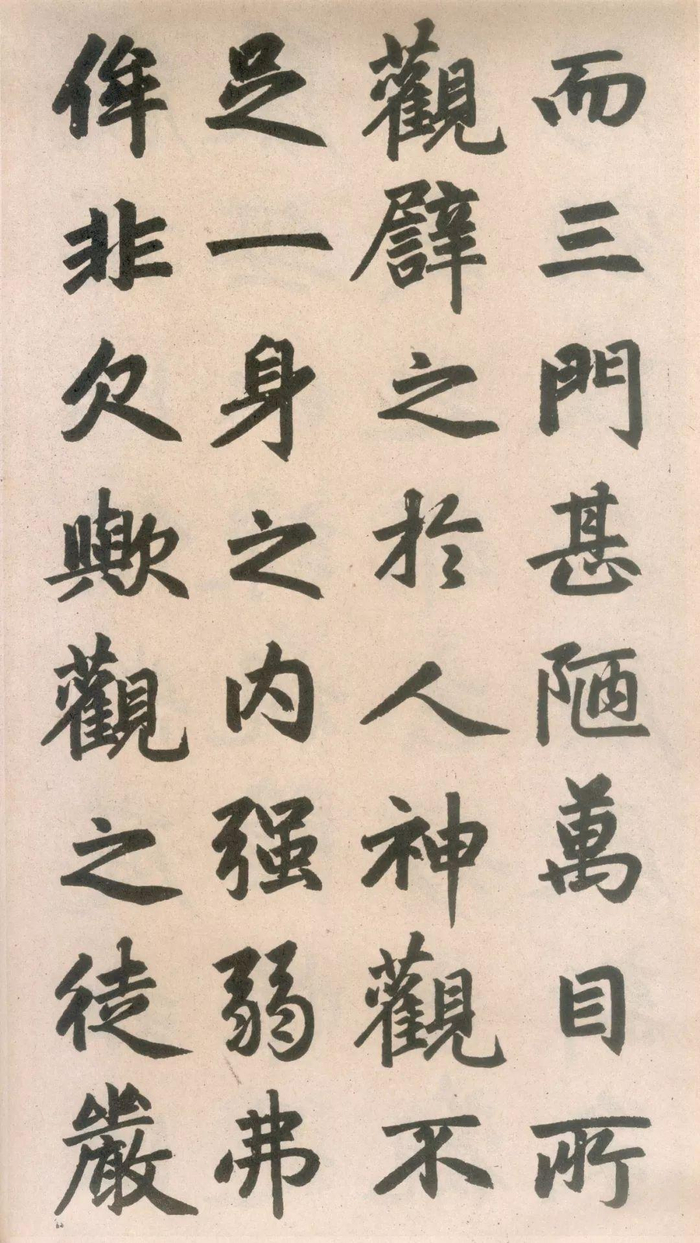 而三門甚陋萬目所
觀譬之於人神觀不
足一身之内强弱弗
侔非欠歟觀之徒嚴